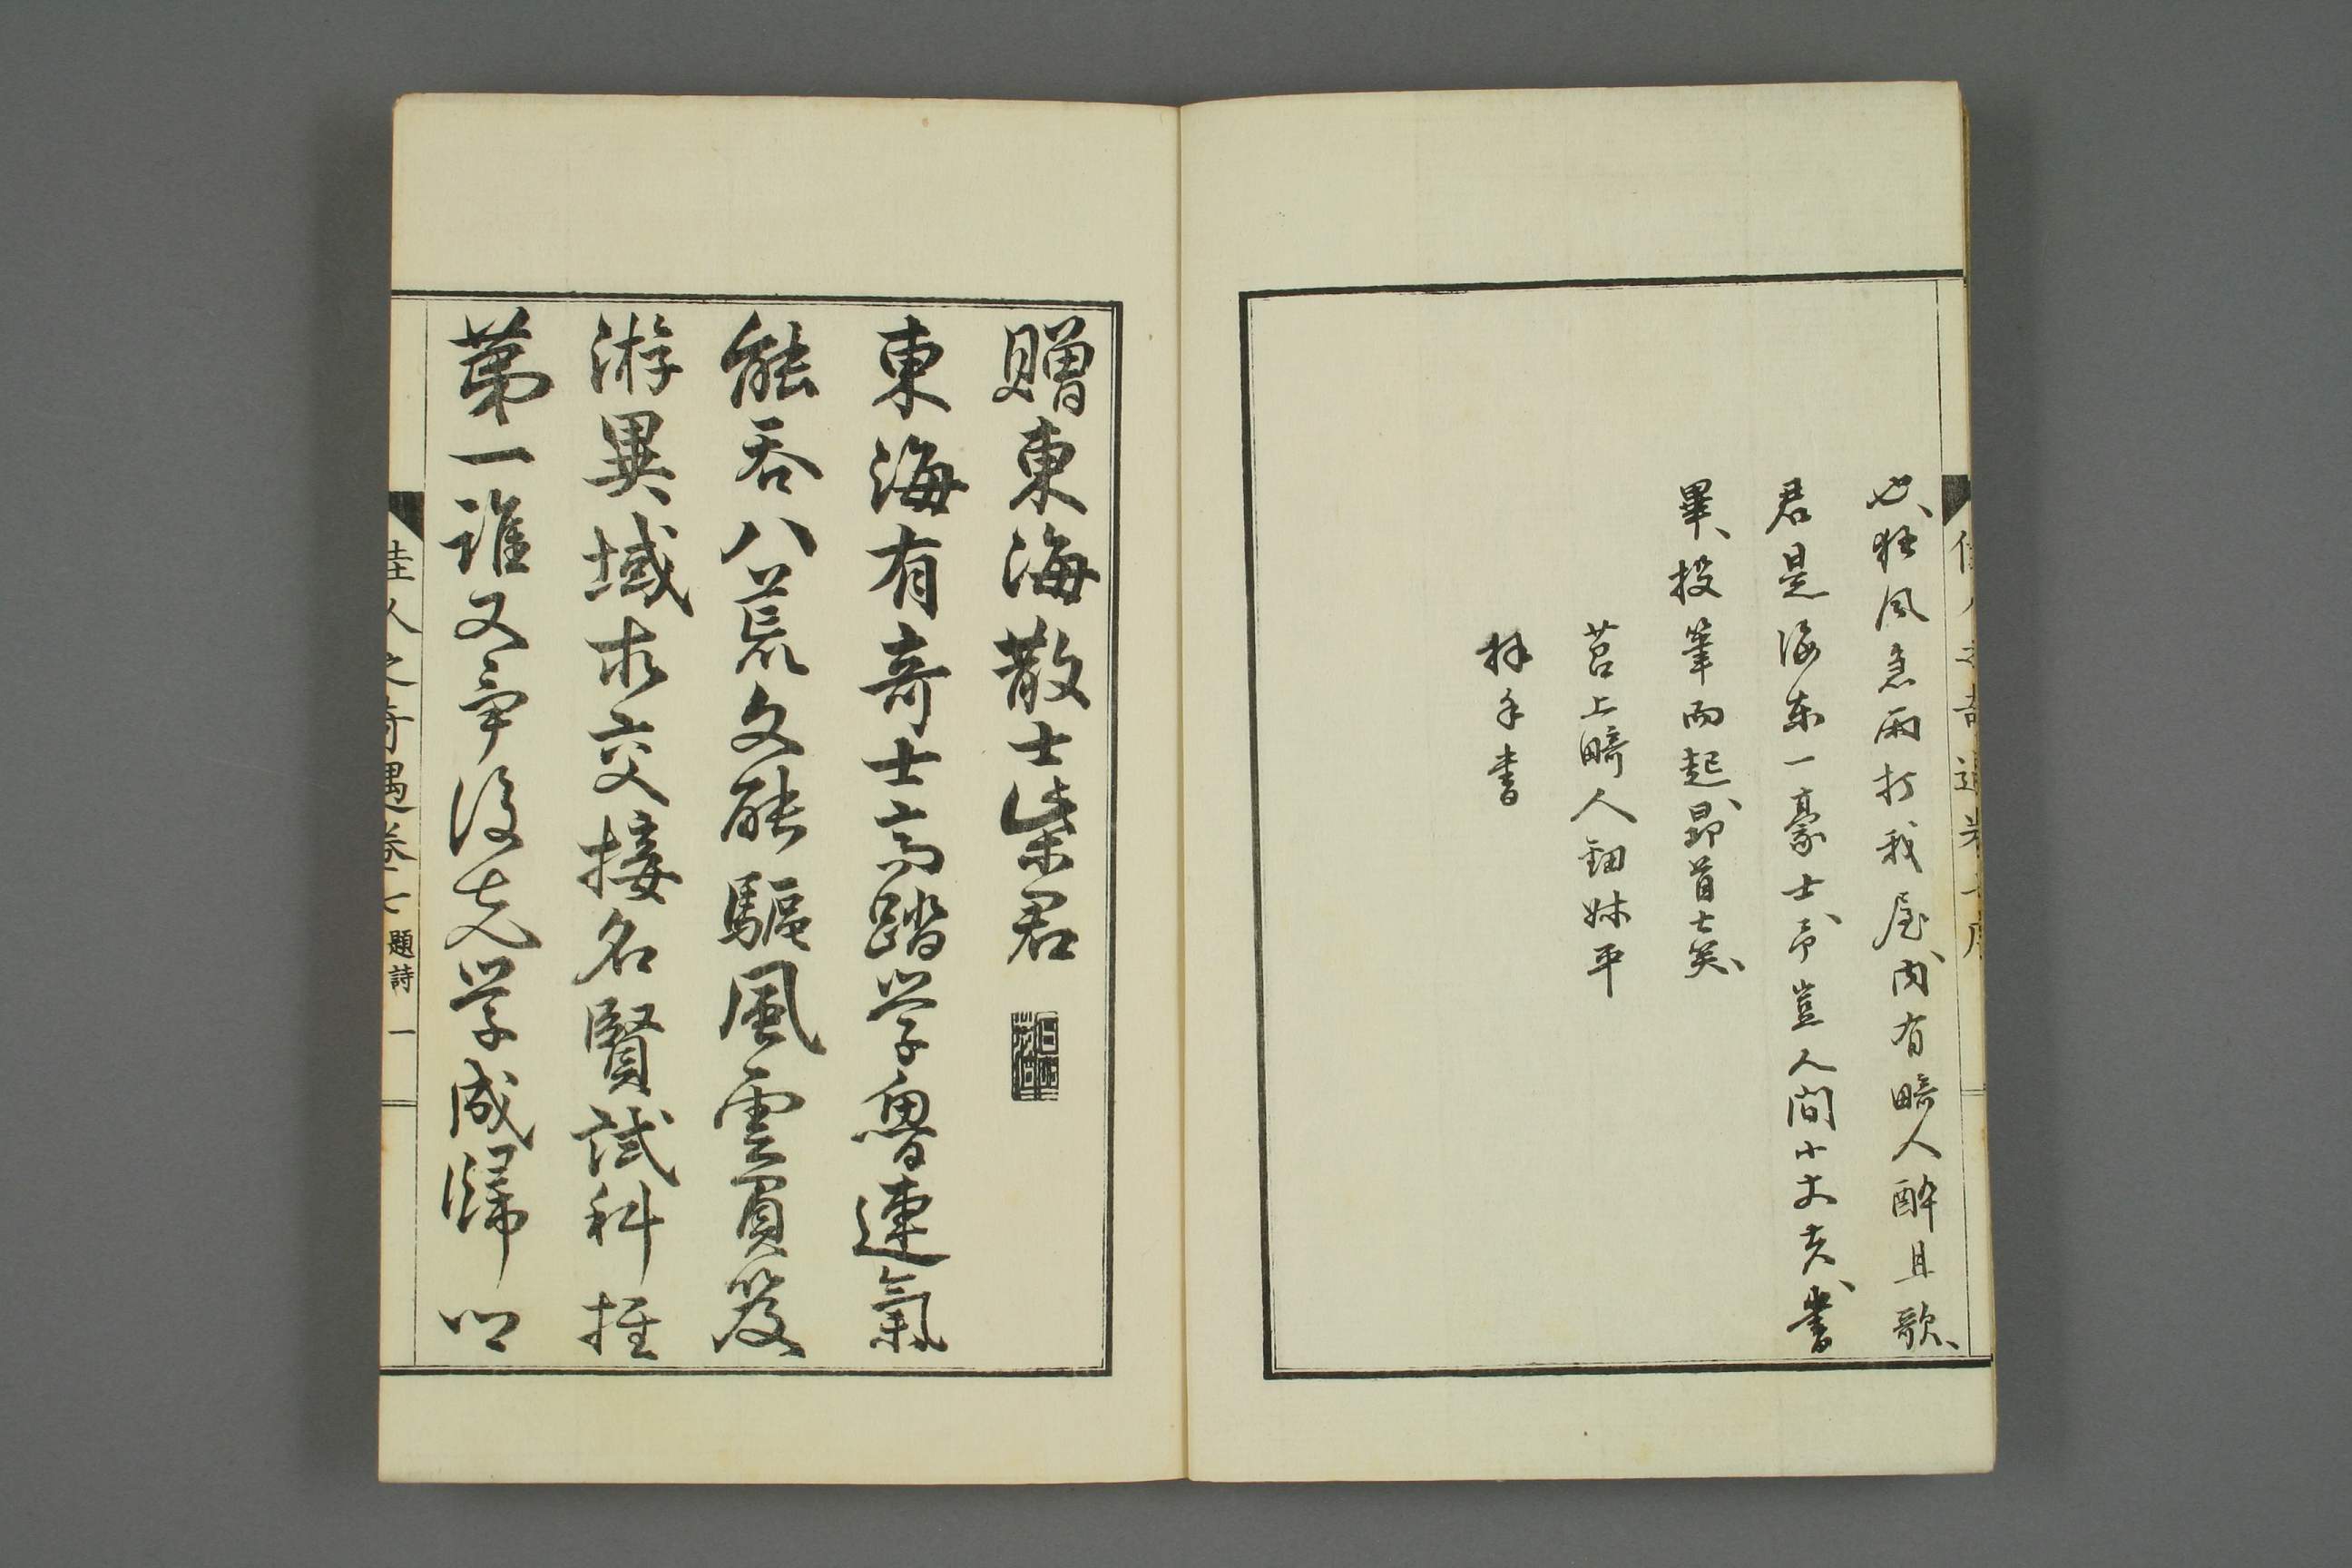 也、狂風急雨打我屋、内有畸人醉且歌、
君是海東一豪士、予豈人間小丈夫、書
畢、投筆而起、昂首大笑、
苕上畸人鈿妹平
拜手書
贈東海散士柴君
東海有奇士高踏学魯連氣
能吞八荒文能驅風雲負笈
游異域求交接名賢試科推
苐一誰又争後先学成歸
佳人之奇遇卷七 題詩 一